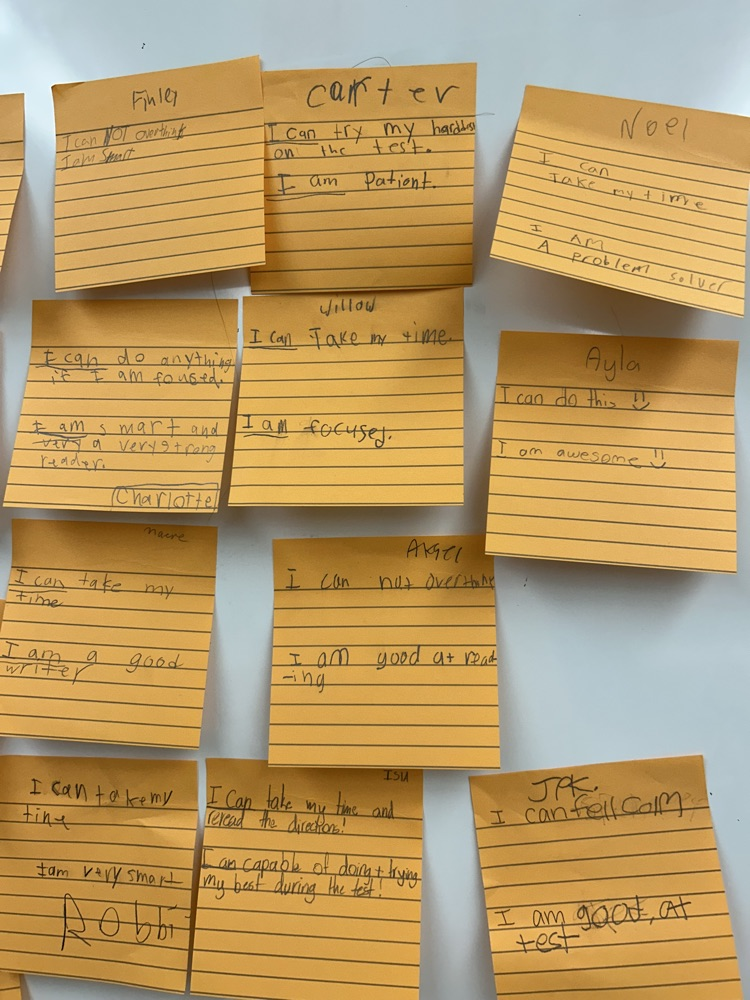 Finley
I can NOT overthink
I am Smart
Carter
I can try my harddest
on the test.
I am Patient.
Noel
I can
Take my time
I AM
A problem solver
I can do anything
if I am focused.
I am smart and
very a very strong
reader.
Charlotte
Willow
I can Take my time.
I am focused.
Ayla
I can do this
I am awesome
I can take my
time
I am a good
writer
I can not overthink
I am good at read
-ing
I can take my
time
I am very smart
Robbi
Isu
I can take my time and
reread the directions!
I am capable of doing + trying
my best during the test!
JPK.
I can fell calm
I am good, at
test